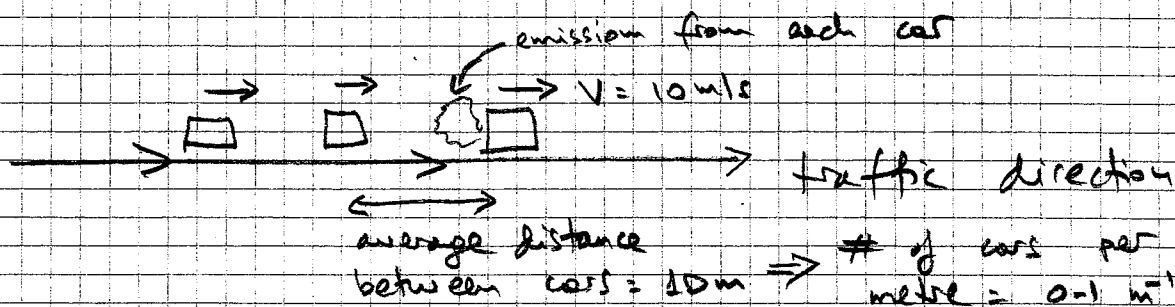 emission from each car
V = 10 m/s
traffic direction
average distance
between cars = 10m ⇒ # of cars per
metre = 0.1 m⁻¹